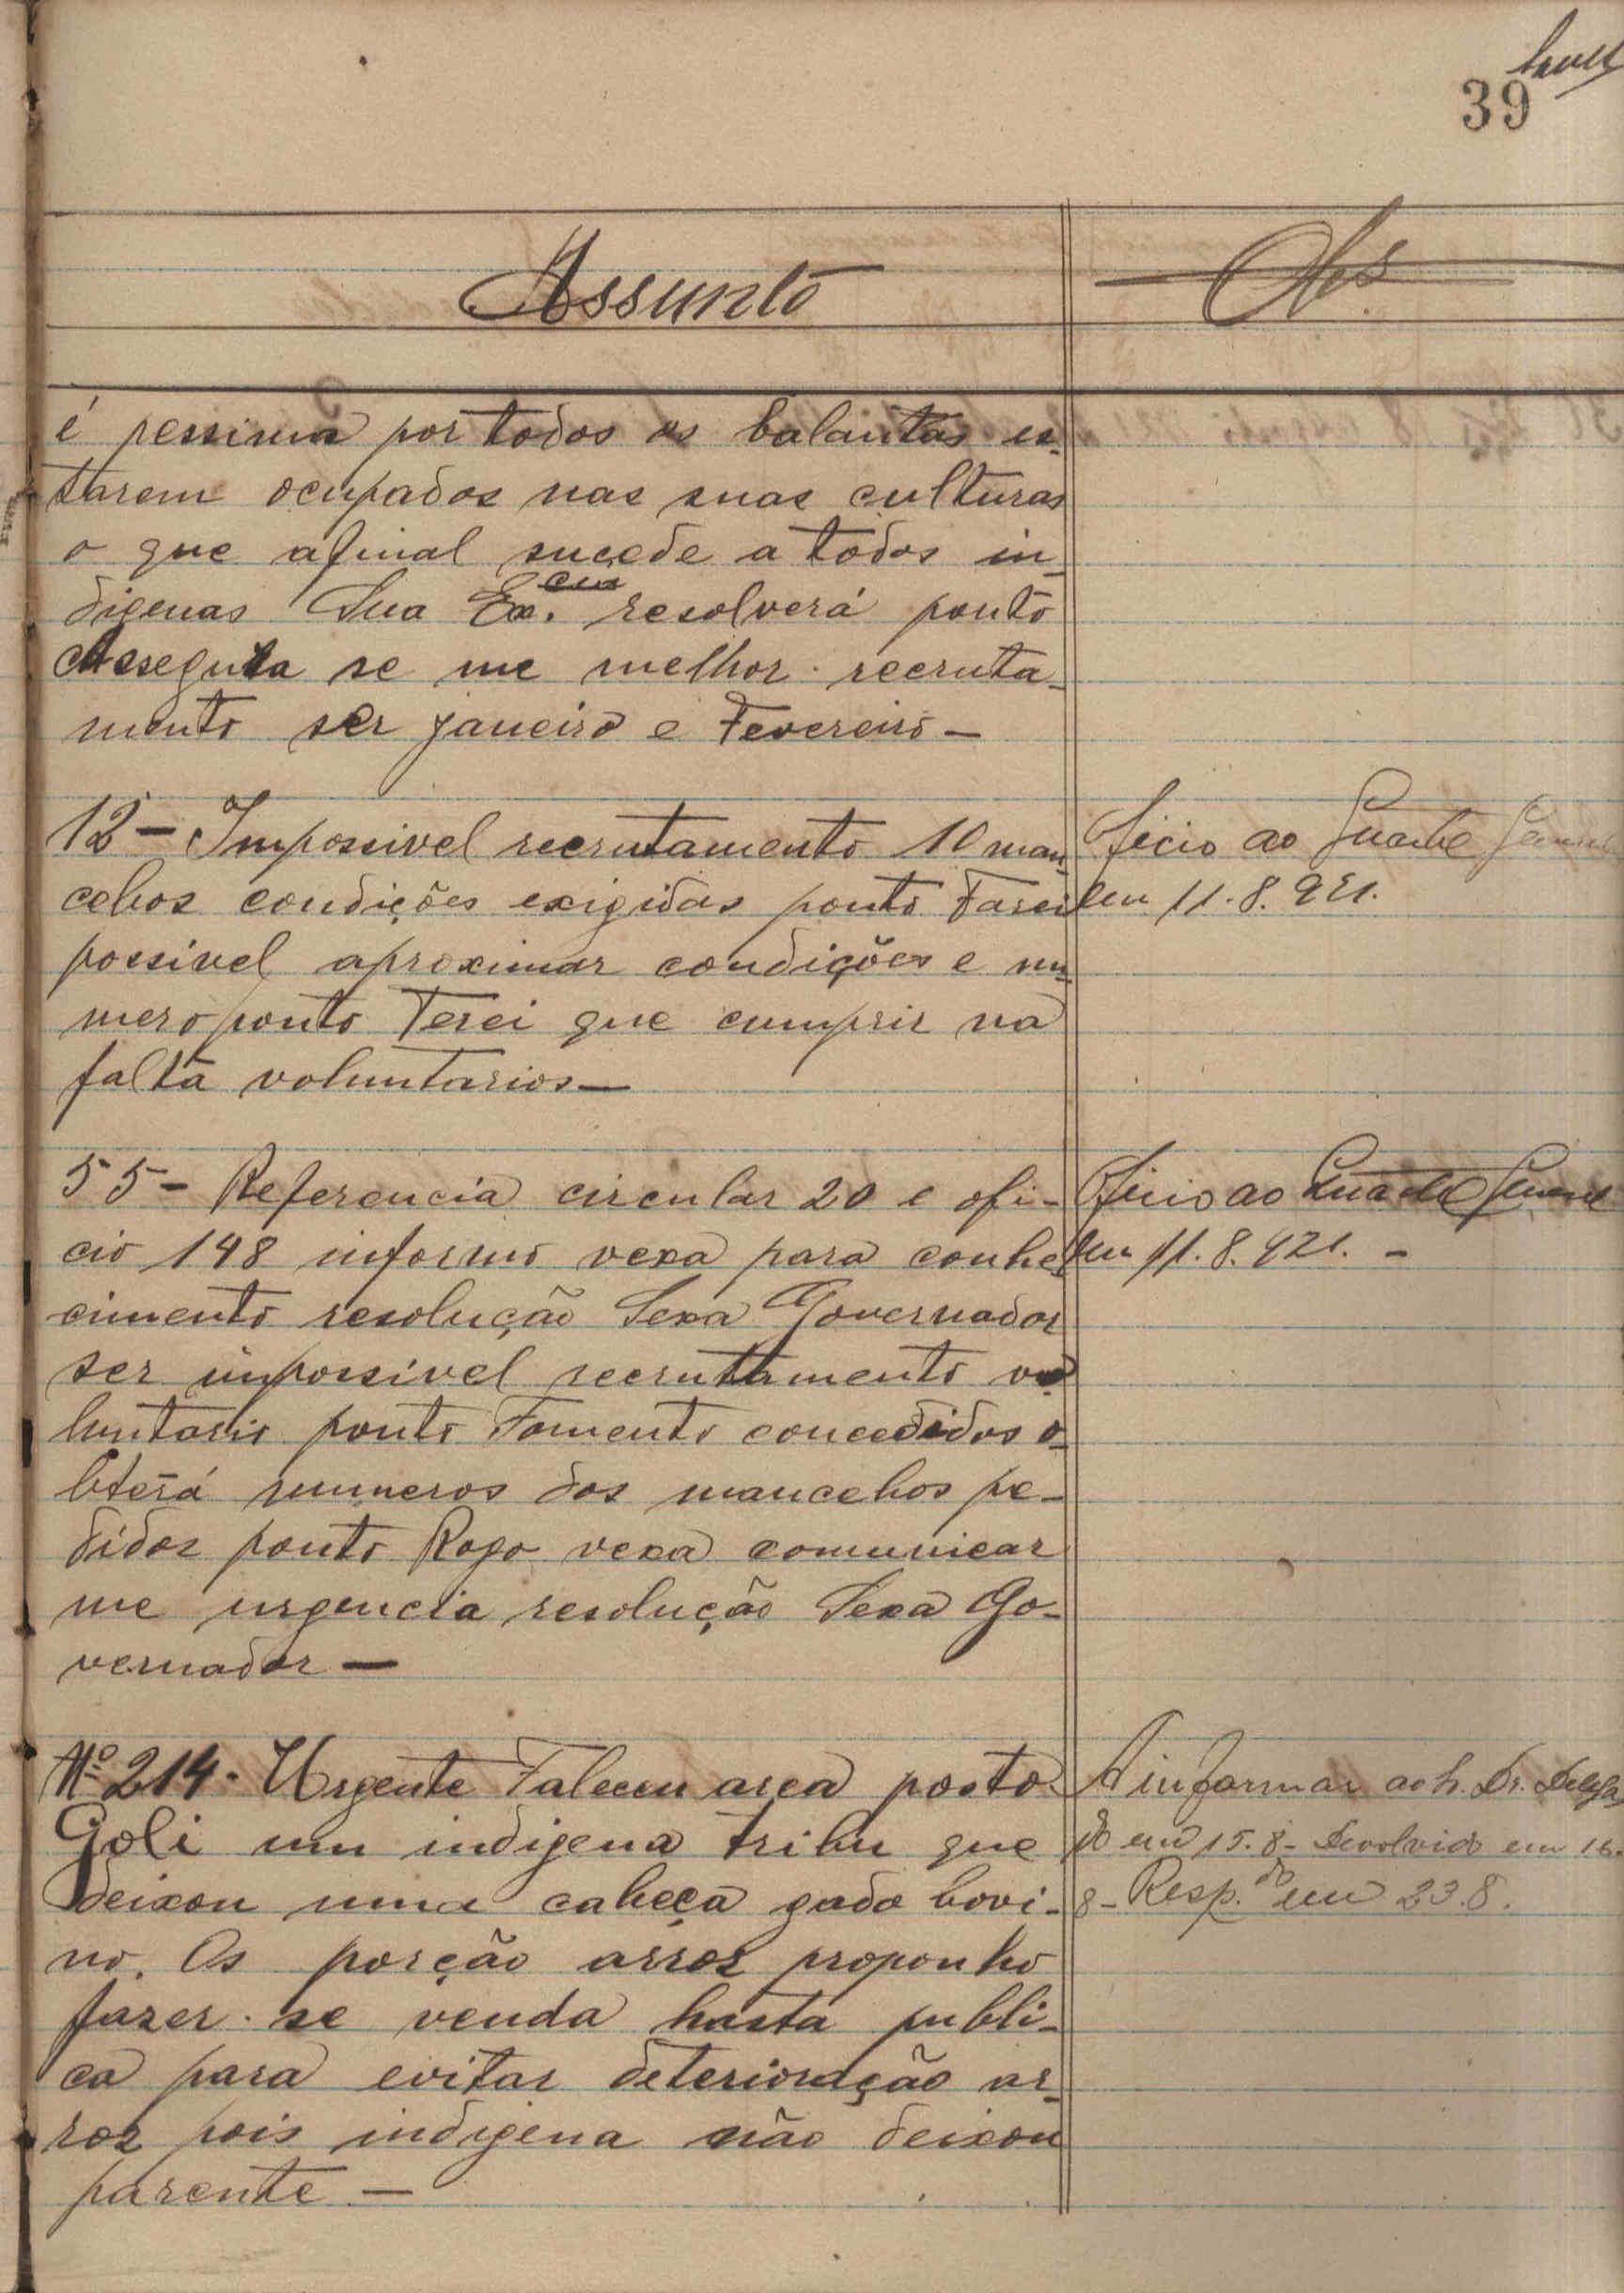 39
Assunto
Obs.
é pessima por todos os balantas es-
tarem ocupados nas suas culturas
o que afinal sucede a todos in-
digenas Sua Ex.cia resolverá ponto
Assegura se me melhor recruta-
mento ser janeiro e Fevereiro —
12 — Impossivel recrutamento 10 man-
cebos condições exigidas ponto Farei
possivel aproximar condições e nu-
mero ponto Terei que cumprir na
falta voluntarios —
Oficio ao Quartel General
em 11.8.921.
55 — Referencia circular 20 e ofi-
cio 148 informo vexa para conhe-
cimento resolução Sexa Governador
ser impossivel recrutamento vo-
luntario ponto Fomento concedidos o-
bterá numeros dos mancebos pe-
didos ponto Rogo vexa comunicar
me urgencia resolução Sexa Go-
vernador —
Oficio ao Quartel General
em 11.8.921. -
Nº 214 - Urgente Faleceu area posto
Goli um indigena tribu que
deixou uma cabeça gado bovi-
no. Os porção arroz proponho
fazer-se venda hasta publi-
ca para evitar deterioração ar-
roz pois indigena não deixou
parente —
A informar ao Sr. Dr. Delega
do em 15.8 - Devolvido em 16.
8 - Resp.do em 23.8.